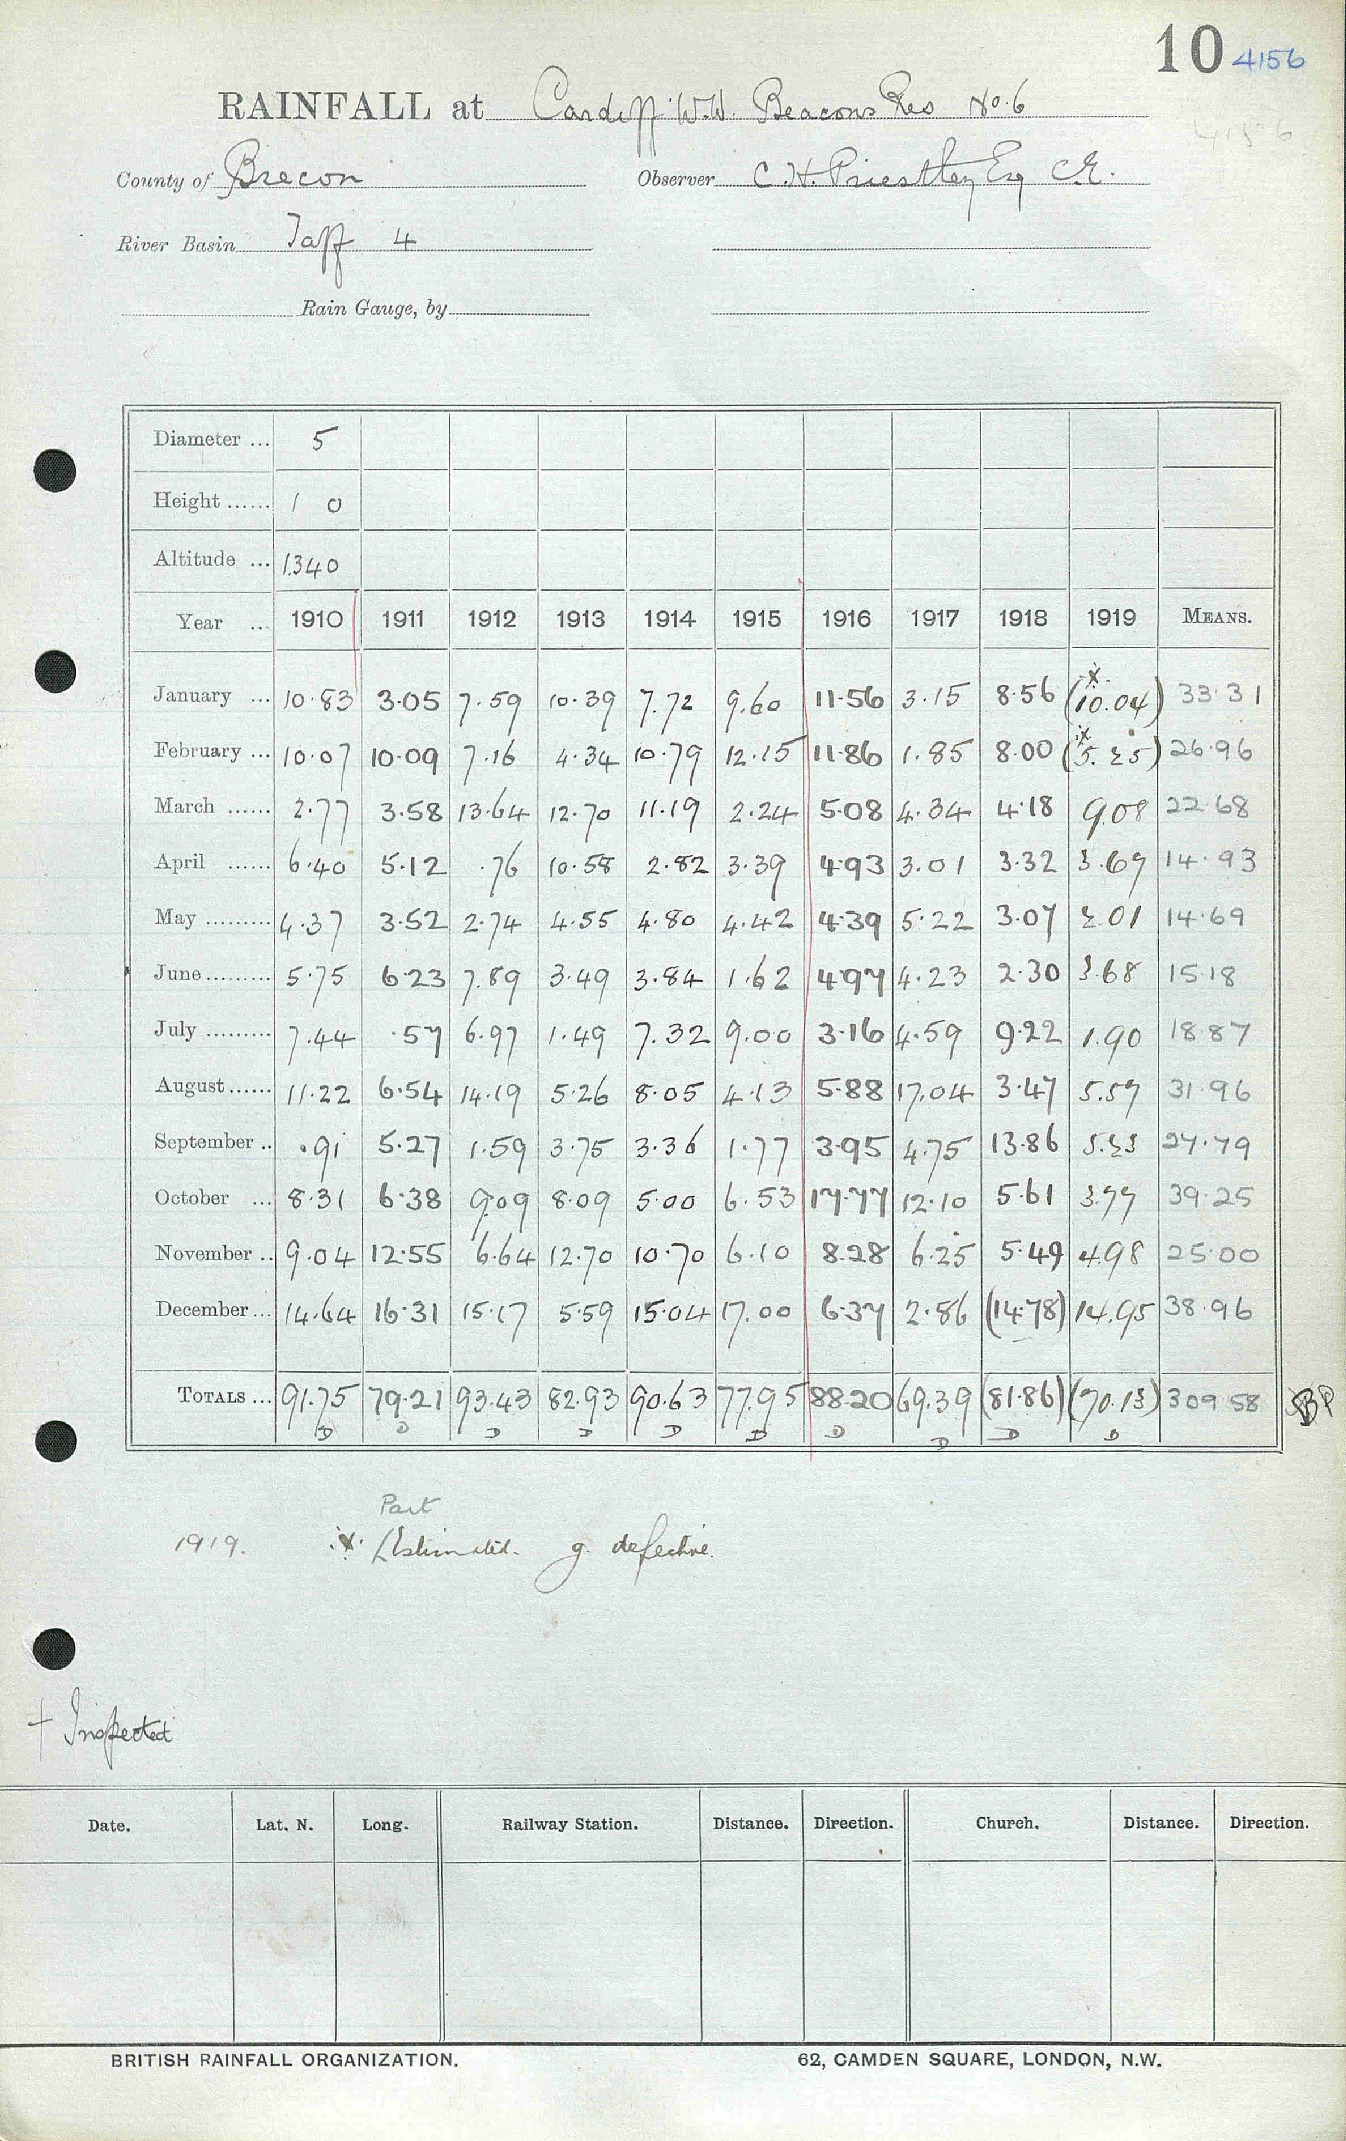 10 4156
RAINFALL at Cardiff W.W. Beacons Res No. 6
4156
County of Brecon Observer C. H. Priestley Esq C.E.
River Basin Taff 4
Rain Gauge, by
Diameter ... 5
Height ...... 1 0
Altitude ... 1340
Year ... 1910 1911 1912 1913 1914 1915 1916 1917 1918 1919 MEANS.
January ... 10.83 3.05 7.59 10.39 7.72 9.60 11.56 3.15 8.56 (10.04) x 33.31
February ... 10.07 10.09 7.16 4.34 10.79 12.15 11.86 1.85 8.00 (5.25) x 26.96
March ...... 2.77 3.58 13.64 12.70 11.19 2.24 5.08 4.34 4.18 9.08 22.68
April ...... 6.40 5.12 .76 10.58 2.82 3.39 4.93 3.01 3.32 3.67 14.93
May ......... 4.37 3.52 2.74 4.55 4.80 4.42 4.39 5.22 3.07 2.01 14.69
June ......... 5.75 6.23 7.89 3.49 3.84 1.62 4.97 4.23 2.30 3.68 15.18
July ......... 7.44 .57 6.97 1.49 7.32 9.00 3.16 4.59 9.22 1.90 18.87
August ...... 11.22 6.54 14.19 5.26 8.05 4.13 5.88 17.04 3.47 5.57 31.96
September .. .91 5.27 1.59 3.75 3.36 1.77 3.95 4.75 13.86 5.23 27.79
October ... 8.31 6.38 9.09 8.09 5.00 6.53 17.77 12.10 5.61 3.77 39.25
November .. 9.04 12.55 6.64 12.70 10.70 6.10 8.28 6.25 5.49 4.98 25.00
December ... 14.64 16.31 15.17 5.59 15.04 17.00 6.37 2.86 (14.78) 14.95 38.96
TOTALS ... 91.75 79.21 93.43 82.93 90.63 77.95 88.20 69.39 (81.86) (70.13) 309.58
D D D D D D D D D D
Part
1919. x Estimated. g. defective.
+ Inspected
Date. Lat. N. Long. Railway Station. Distance. Direction. Church. Distance. Direction.
BRITISH RAINFALL ORGANIZATION. 62, CAMDEN SQUARE, LONDON, N.W.